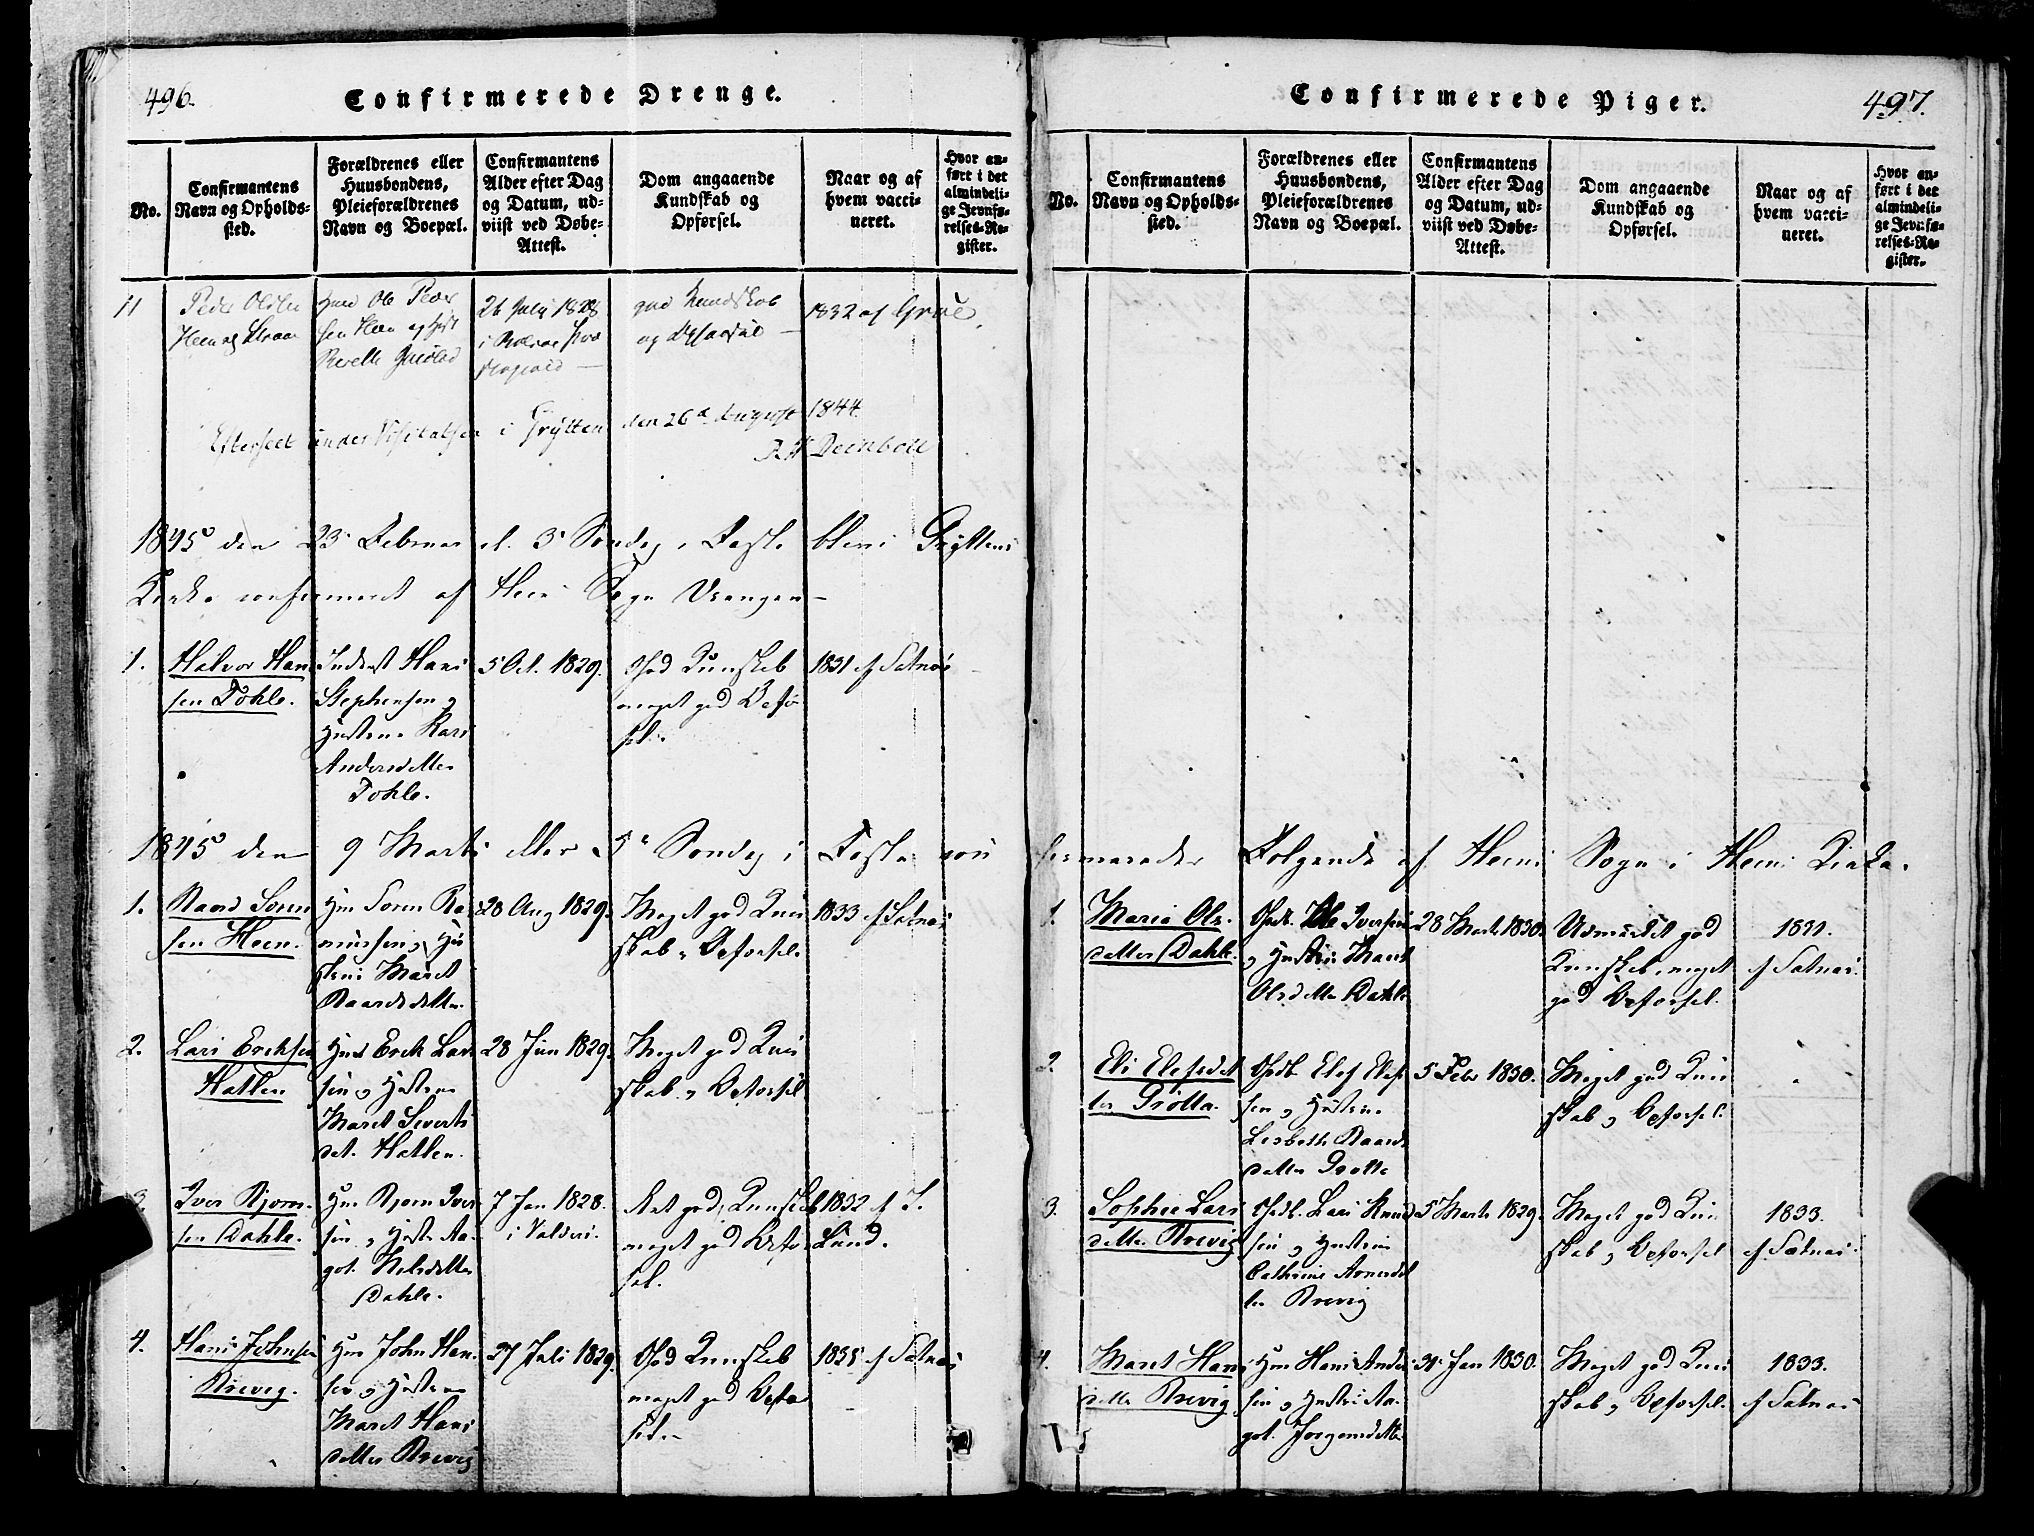 496.
Confirmerede Drenge.
No.
Confirmantens
Navn og Opholds-
sted.
Forældrenes eller
Huusbondens,
Pleieforældrenes
Navn og Boepæl.
Confirmantens
Alder efter Dag
og Datum, ud-
viist ved Døbe-
Attest.
Dom angaaende
Kundskab og
Opførsel.
Naar og af
hvem vacci-
neret.
Hvor an-
ført i det
almindeli-
ge Jevnfø-
relses-Re-
gister.
11
Peder Olsen
Heen og
Ole Peder
sen Heen og
26 July 1828
i
god Kundskab
og Opførsel
1832 af
Efterseet under Visitatsen i Grytten den 26de August 1844.
Deinboll
1845 den 23 Februar el. 3 Søndag i Faste blev i Gryttens
Kirke confirmeret af Heens Sogn
1.
Halvor Han
sen Tokle.
Inderst Hans
Stephensen og
Hustrue Kari
Andersdatter
Tokle.
5 Oct. 1829.
God Kunskab
meget god Opfør
sel.
1831 af Sætnæs
1845 den 9 Marts eller 5te Søndag i Faste con
1.
Raand Søren
sen Heen.
Gm Søren Ra
smussen og Hu
strue Maret
Raandsdatter.
28 Aug 1829.
Meget god Kun
skab og Opførsel.
1833 af Sætnæs
2.
Lars Eriksen
Hatlen
Gmd Erik Lar
sen og Hustrue
Maret Siverts
dat. Hatlen.
28 Jun 1829.
Meget god Kun
skab og Opførsel
3.
Iver Bjørn
sen Dahle.
Gm Bjørn Iver
sen og Hustr Aa
got Nilsdatter
Dahle.
7 Jan 1828.
i Valders.
god Kunskab
meget god Opfør
sel.
1832 af
Lund.
4.
Hans Johnsen
Brevig.
Gm John Han
sen og Hustrue
Maret Hans
datter Brevig
27 Juli 1829.
God Kunskab
meget god Opfør
sel.
1835 af Sætnæs
497.
Confirmerede Piger.
No.
Confirmantens
Navn og Opholds-
sted.
Forældrenes eller
Huusbondens,
Pleieforældrenes
Navn og Boepæl.
Confirmantens
Alder efter Dag
og Datum, ud-
viist ved Døbe-
Attest.
Dom angaaende
Kundskab og
Opførsel.
Naar og af
hvem vacci-
neret.
Hvor an-
ført i det
almindeli-
ge Jevnfø-
relses-Re-
gister.
firmerede Følgende af Heens Sogn i Heens Kirke.
1.
Maria Ols
datter Dahle.
Ole Iversen
og Hustrue Maret
Olsdatter Dahle
28 Mart. 1830.
Udmærket god
Kunskab, meget
god Opførsel.
af Sætnæs.
2.
Eli Elefsdat
ter Grøtta.
Elef Elef
sen og Hustrue
Lisbeth Raands
datter Grøtte
5 Febr 1830.
Meget god Kun
skab og Opførsel.
3.
Sophie Lars
datter Brevig
Lars Knud
sen og Hustrue
Cathrine Arnesdat
ter Brevig
5 Marts 1829.
Meget god Kun
skab og Opførsel
1833.
af Sætnæs.
4.
Maret Hans
datter Brevig
Gm Hans Ander
sen og Hustrue Aa
got Jørgensdatter
31 Jan 1830.
Meget god Kun
skab og Opførsel.
1833.
af Sætnæs